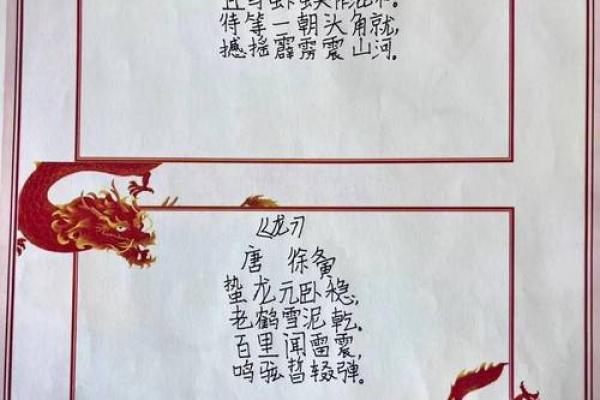 待等一朝头角就,
撼摇霹雳震山河。
《龙》
唐 徐夤
蛰龙元卧稳,
老鹤雪泥乾。
百里闻雷震,
鸣弦暂辍弹。